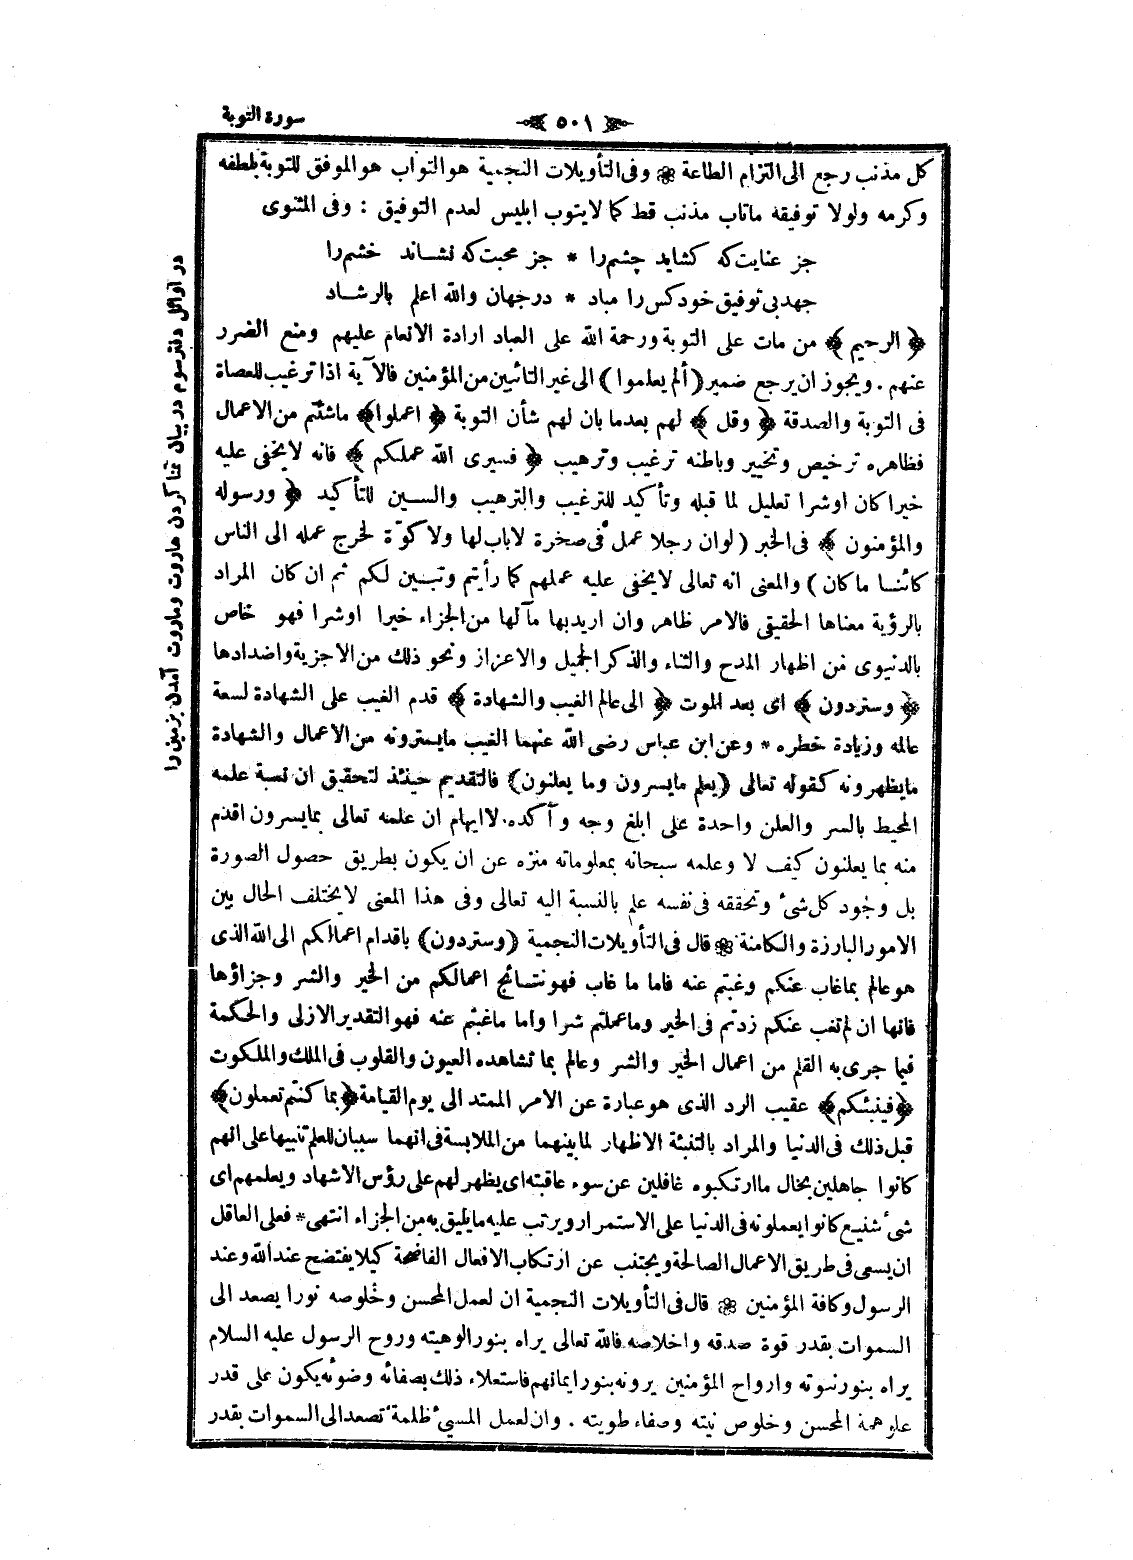 سورة التوبة
٥٠١
كل مذنب رجع الى التزام الطاعة ❀ وفى التأويلات النجمية هو التواب هو الموفق للتوبة بلطفه
وكرمه ولولا توفيقه ماتاب مذنب قط كما لايتوب ابليس لعدم التوفيق : وفى المثنوى
جز عنايت كه كشايد چشم را * جز محبت كه نشاند خشم را
جهد بى توفيق خود كس را مباد * درجهان والله اعلم بالرشاد
﴿ الرحيم ﴾ من مات على التوبة ورحمة الله على العباد ارادة الانعام عليهم ومنع الضرر
عنهم . ويجوز ان يرجع ضمير ( ألم يعلموا ) الى غير التائبين من المؤمنين فالآية اذا ترغيب للعصاة
فى التوبة والصدقة ﴿ وقل ﴾ لهم بعدما بان لهم شأن التوبة ﴿ اعملوا ﴾ ماشئتم من الاعمال
فظاهره ترخيص وتخيير وباطنه ترغيب وترهيب ﴿ فسيرى الله عملكم ﴾ فانه لايخفى عليه
خيرا كان اوشرا تعليل لما قبله وتأكيد للترغيب والترهيب والسين للتأكيد ﴿ ورسوله
والمؤمنون ﴾ فى الخبر ( لوان رجلا عمل فى صخرة لاباب لها ولا كوّة لخرج عمله الى الناس
كائنا ما كان ) والمعنى انه تعالى لايخفى عليه عملهم كما رأيتم وتبين لكم ثم ان كان المراد
بالرؤية معناها الحقيقى فالامر ظاهر وان اريد بها مآلها من الجزاء خيرا اوشرا فهو خاص
بالدنيوى من اظهار المدح والثناء والذكر الجميل والاعزاز ونحو ذلك من الاجزية واضدادها
﴿ وستردون ﴾ اى بعد الموت ﴿ الى عالم الغيب والشهادة ﴾ قدم الغيب على الشهادة لسعة
عالمه وزيادة خطره * وعن ابن عباس رضى الله عنهما الغيب مايسترونه من الاعمال والشهادة
مايظهرونه كقوله تعالى ( يعلم مايسرون وما يعلنون ) فالتقديم حينئذ لتحقيق ان نسبة علمه
المحيط بالسر والعلن واحدة على ابلغ وجه وآكده. لاايهام ان علمه تعالى بمايسرون اقدم
منه بما يعلنون كيف لا وعلمه سبحانه بمعلوماته منزه عن ان يكون بطريق حصول الصورة
بل وجود كل شئ وتحققه فى نفسه علم بالنسبة اليه تعالى وفى هذا المعنى لايختلف الحال بين
الامور البارزة والكامنة ❀ قال فى التأويلات النجمية ( وستردون ) باقدام اعمالكم الى الله الذى
هو عالم بماغاب عنكم وغبتم عنه فاما ما غاب فهو نتائج اعمالكم من الخير والشر وجزاؤها
فانها ان لم تغب عنكم زدتم فى الخير وماعملتم شرا واما ماغبتم عنه فهو التقدير الازلى والحكمة
فيما جرى به القلم من اعمال الخير والشر وعالم بما تشاهده العيون والقلوب فى الملك والملكوت
﴿ فينبئكم ﴾ عقيب الرد الذى هو عبارة عن الامر الممتد الى يوم القيامة ﴿ بما كنتم تعملون ﴾
قبل ذلك فى الدنيا والمراد بالتنبئة الاظهار لمابينهما من الملابسة فى انهما سببان للعلم تنبيها على انهم
كانوا جاهلين بحال ماارتكبوه غافلين عن سوء عاقبته اى يظهر لهم على رؤس الاشهاد ويعلمهم اى
شئ شنيع كانوا يعملونه فى الدنيا على الاستمرار ويرتب عليه مايليق به من الجزاء انتهى * فعلى العاقل
ان يسعى فى طريق الاعمال الصالحة ويجتنب عن ارتكاب الافعال الفاضحة كيلا يفتضح عند الله وعند
الرسول وكافة المؤمنين ❀ قال فى التأويلات النجمية ان لعمل المحسن وخلوصه نورا يصعد الى
السموات بقدر قوة صدقه واخلاصه فالله تعالى يراه بنور الوهيته وروح الرسول عليه السلام
يراه بنور نبوته وارواح المؤمنين يرونه بنور ايمانهم فاستعلاء ذلك بصفائه وضوئه يكون على قدر
علو همة المحسن وخلوص نيته وصفاء طويته . وان لعمل المسيئ ظلمة تصعد الى السموات بقدر
در اوائل دفتر سوم در بيان تمنا كردن هاروت وماروت آمدن بزمين را